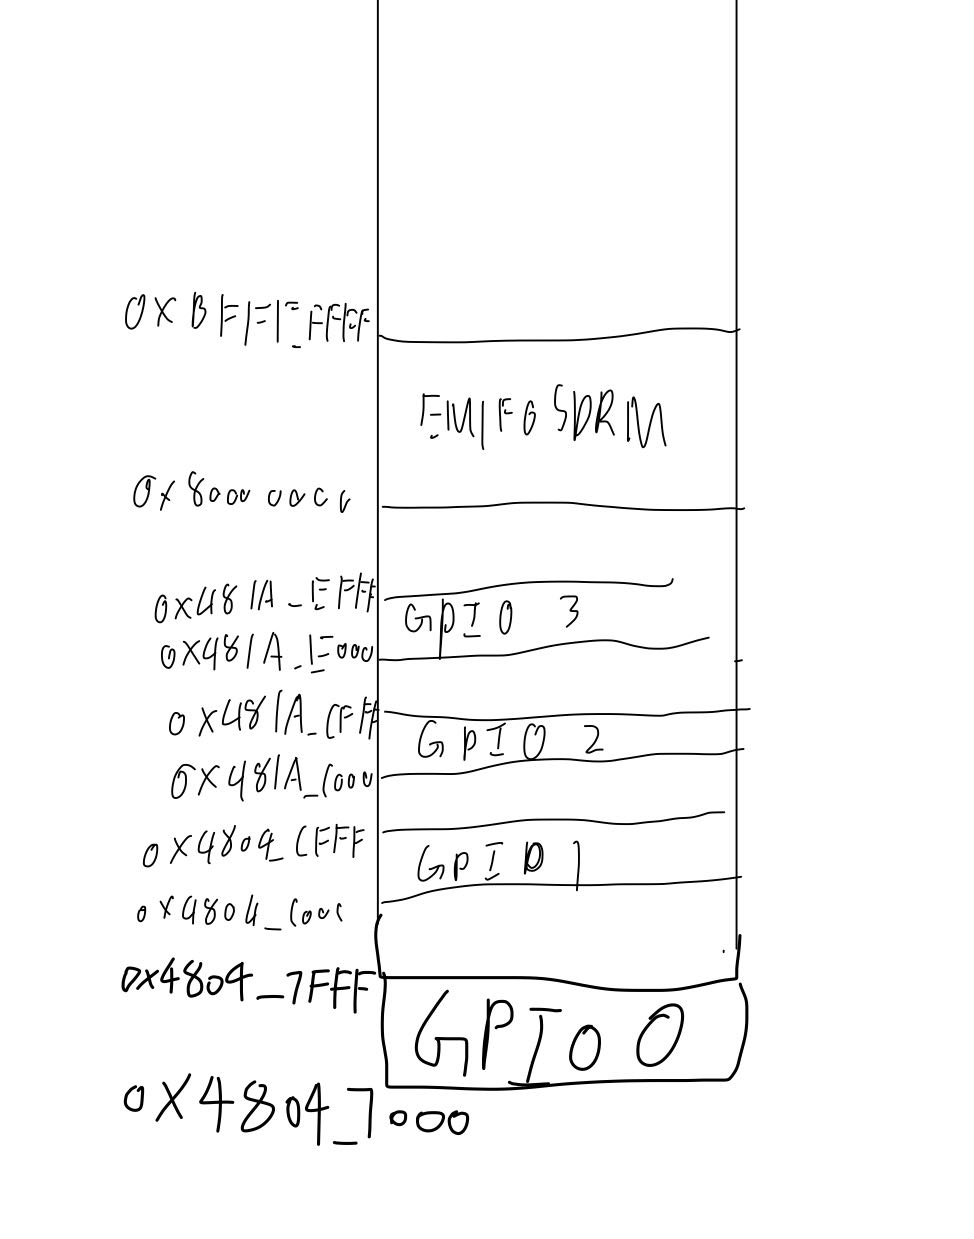 0xBFFF_FFFF
EMIF0 SDRM
0x8000 0000
0x481A_EFFF
GPIO 3
0x481A_E000
0x481A_CFFF
GPIO 2
0x481A_C000
0x4804_CFFF
GPIO 1
0x4804_C000
0x4804_7FFF
GPIO 0
0x4804_7000